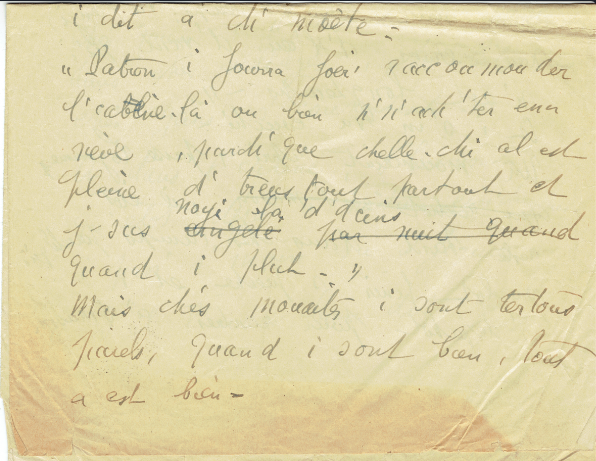 i dit à ch' moète -
" Patron i fourra foér' raccommonder
l'cabène-là ou bien n'n'ach'ter enn
neve, parch'que chelle-chi al est
pleine d' treus tout partout et
j-sus noyé là d'dains
quand i pluh - "
Mais chés mouaites i sont tertous
parels, quand i sont bien, tout
a est bien -